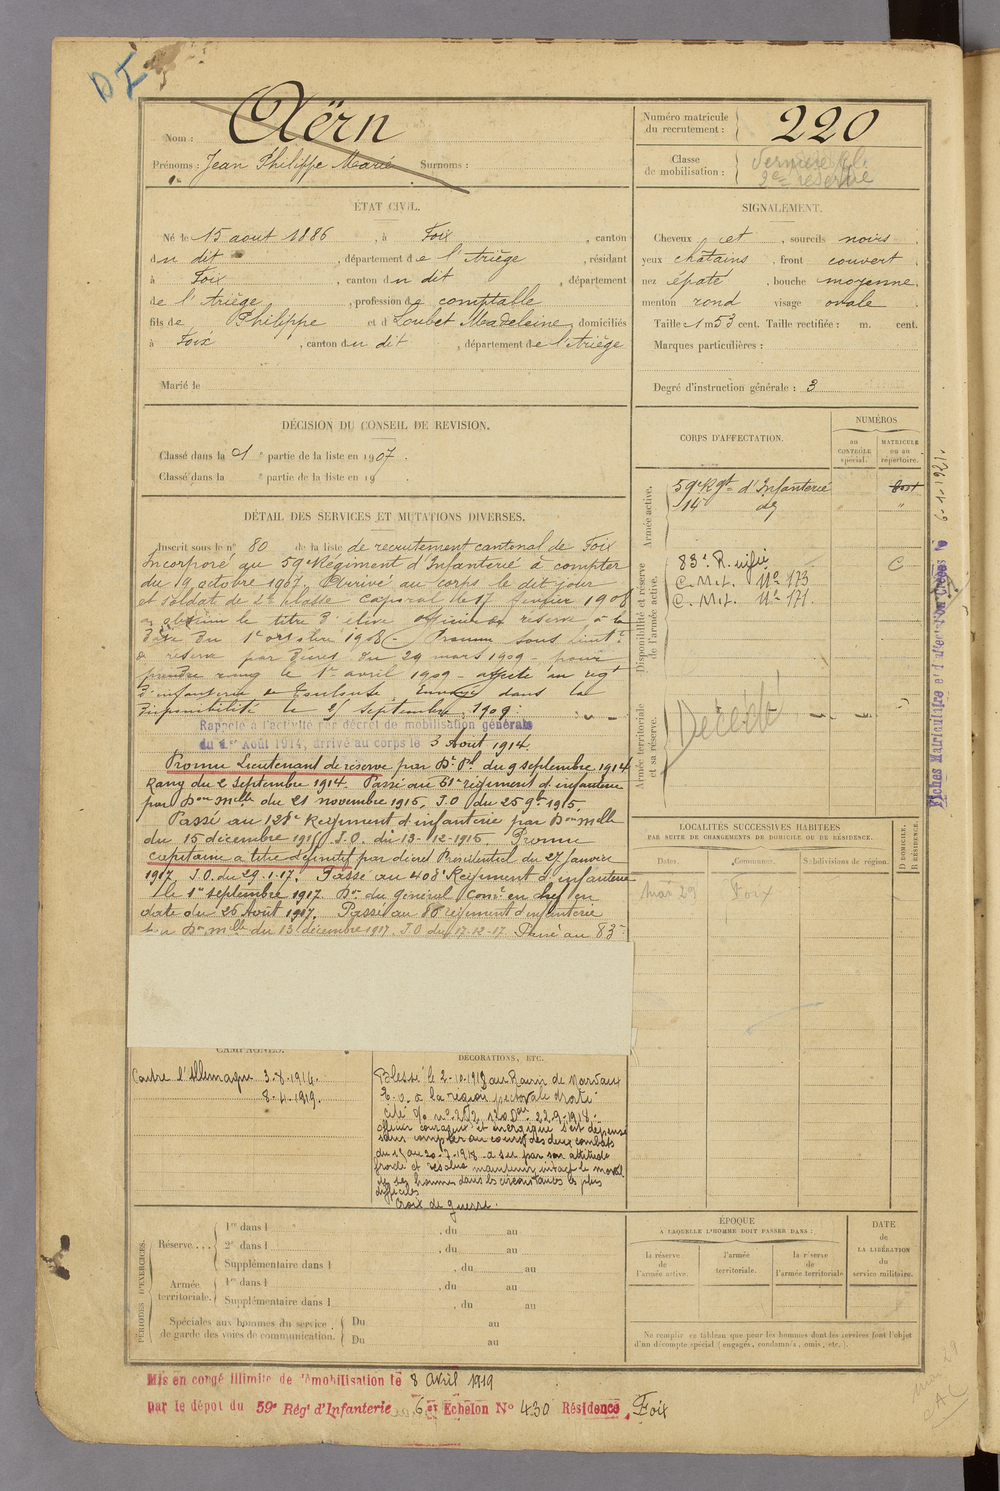 DI
Nom : Aërn
Prénoms : Jean Philippe Marie Surnoms :
Numéro matricule du recrutement : 220
Classe de mobilisation :
2e réserve
ÉTAT CIVIL.
Né le 15 aout 1886, à Foix, canton
du dit, département de l'Ariège, résidant
à Foix, canton du dit, département
de l'Ariège, profession de comptable
fils de Philippe et d Loubet Madeleine, domiciliés
à Foix, canton du dit, département de l'Ariège
Marié le
SIGNALEMENT.
Cheveux et, sourcils noirs
yeux chatains, front couvert
nez épaté, bouche moyenne.
menton rond visage ovale
Taille 1 m 53 cent. Taille rectifiée : m. cent.
Marques particulières :
Degré d'instruction générale : 3
DÉCISION DU CONSEIL DE REVISION.
Classé dans la 1e partie de la liste en 1907.
Classé dans la e partie de la liste en 19
DÉTAIL DES SERVICES ET MUTATIONS DIVERSES.
Inscrit sous le n° 80 de la liste de recrutement cantonal de Foix
Incorporé au 59e Régiment d'Infanterie à compter
du 19 octobre 1907. Arrivé au corps le dit jour
et soldat de 2e classe caporal le 17 février 1908
a obtenu le titre d'élève officier de réserve à la
date du 1er octobre 1908 - Promu sous lieutt
de réserve par décret du 29 mars 1909 - pour
prendre rang le 1er avril 1909 - affecté au régt
d'infanterie de Toulouse. Envoyé dans la
disponibilité le 25 septembre 1909.
Rappelé à l'activité par décret de mobilisation générale
du 1er Août 1914, arrivé au corps le 3 Août 1914.
Promu Lieutenant de réserve par Dt Pl du 9 septembre 1914
Rang du 2 Septembre 1914. Passé au 61e régiment d'infanterie
par Don mlle du 21 novembre 1915. J.O du 25 9bre 1915.
Passé au 128e Régiment d'infanterie par Don mlle
du 15 décembre 1915 J.O. du 13-12-1915. Promu
capitaine à titre définitif par décret Présidentiel du 27 Janvier
1917. J.O. du 29-1-17. Passé au 408e Régiment d'infanterie
le 1er septembre 1917. Don du général Comt en chef en
date du 26 Août 1917. Passé au 86e régiment d'infanterie
par Don mlle du 13 décembre 1917. J.O du 17-12-17. Passé au 83e
CORPS D'AFFECTATION.
NUMÉROS
au CONTRÔLE spécial.
MATRICULE ou au répertoire.
Armée active.
59e Rgt d'Infanterie
14e do
Disponibilité et réserve de l'armée active.
83e R. inf C
C. Mil. No 173
C. Mil. No 171.
Armée territoriale et sa réserve.
Décédé
Fiches Matriculaire et d'affectation créées le 6-1-1921.
LOCALITÉS SUCCESSIVES HABITÉES
PAR SUITE DE CHANGEMENTS DE DOMICILE OU DE RÉSIDENCE.
Dates. Communes. Subdivisions de région. D DOMICILE. R RÉSIDENCE.
mai 29 Foix
CAMPAGNES.
Contre l'Allemagne 3-8-1914.
8-4-1919.
DÉCORATIONS, ETC.
Blessé le 2-10-1918 au Ravin de Marvaux
E. o. à la région pectorale droite
Cité
officier courageux et énergique s'est dépensé
sans compter au cours des deux combats
du 15 au 20-7-1918 a su par son attitude
froide et résolue maintenir intact le moral
de ses hommes dans les circonstances les plus
difficiles
Croix de guerre.
PÉRIODES D'EXERCICES.
Réserve ...
1re dans l , du au
2e dans l , du au
Supplémentaire dans l , du au
Armée territoriale.
1re dans l , du au
Supplémentaire dans l , du au
Spéciales aux hommes du service de garde des voies de communication.
Du au
Du au
ÉPOQUE
A LAQUELLE L'HOMME DOIT PASSER DANS :
la réserve de l'armée active.
l'armée territoriale.
la réserve de l'armée territoriale
DATE de LA LIBÉRATION du service militaire.
Ne remplir ce tableau que pour les hommes dont les services font l'objet
d'un décompte spécial (engagés, condamnés, omis, etc.).
Mis en congé illimité de démobilisation le 8 avril 1919
par le dépôt du 59e Régt d'Infanterie 6e Echelon No 430 Résidence Foix